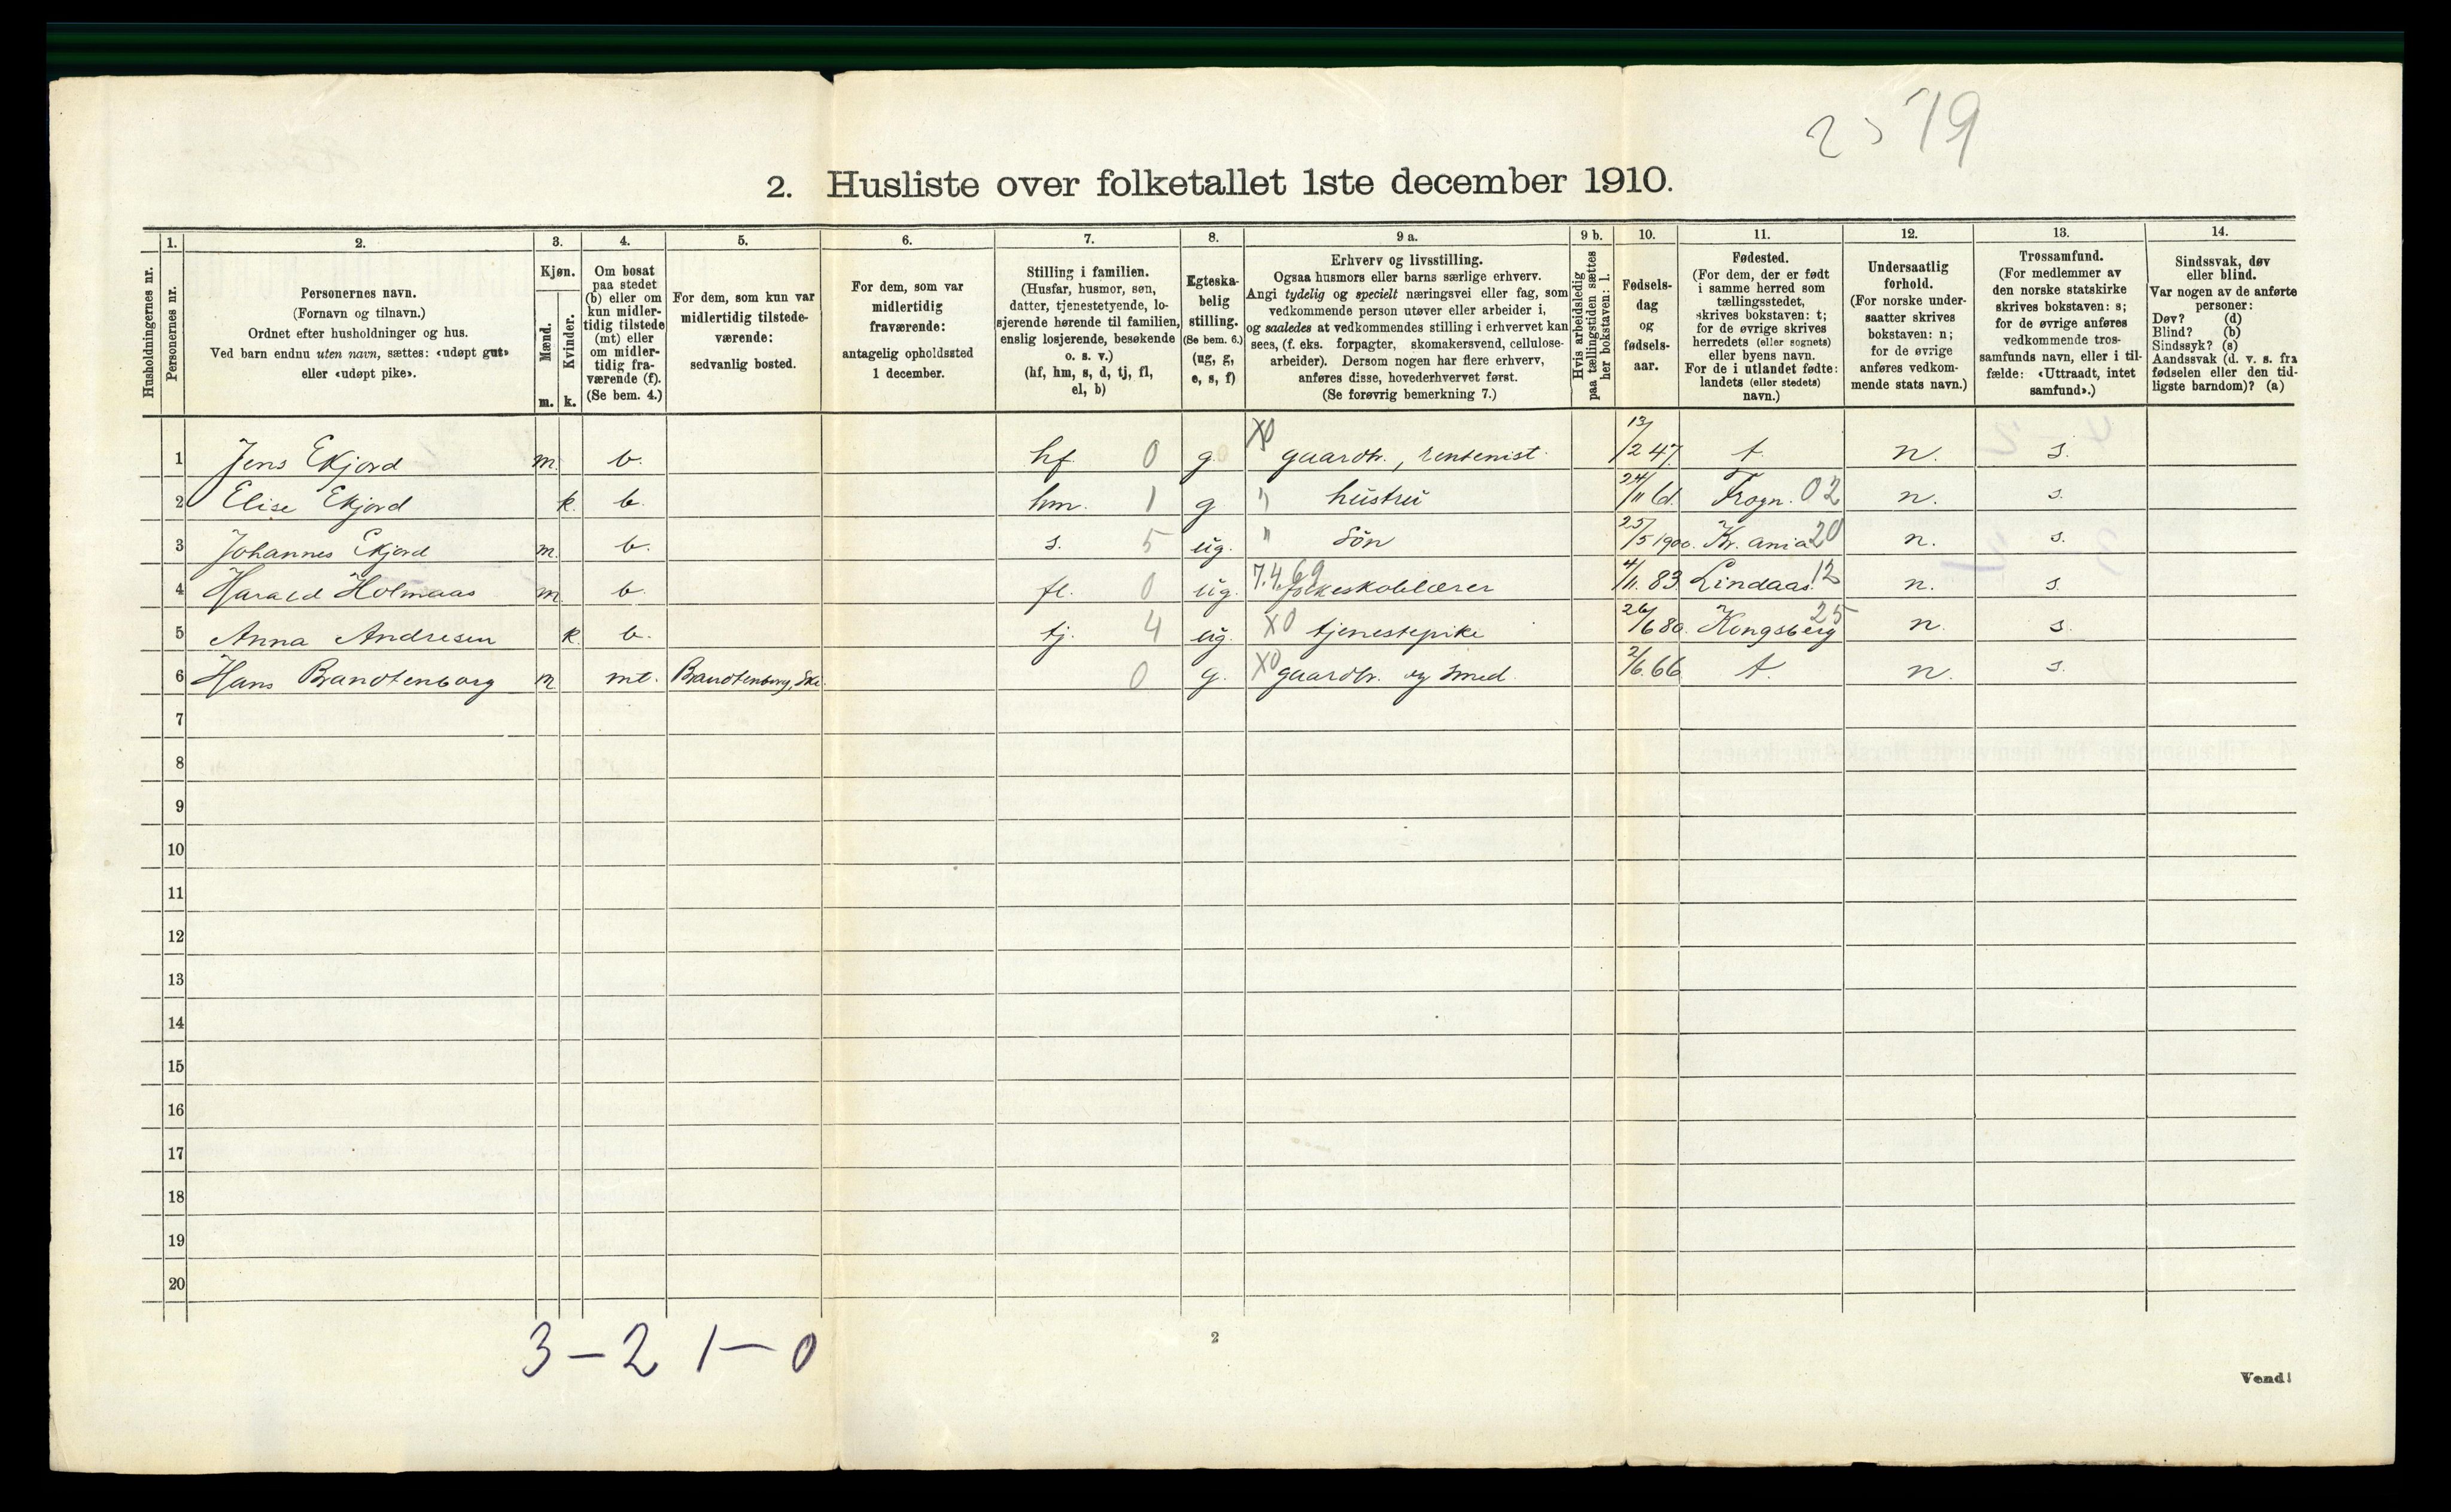 19
2. Husliste over folketallet 1ste december 1910.
Husholdningernes nr.
1.
Personernes nr.
2.
Personernes navn.
(Fornavn og tilnavn.)
Ordnet efter husholdninger og hus.
Ved barn endnu uten navn, sættes: «udøpt gut»
eller «udøpt pike».
3.
Kjøn.
Mænd.
Kvinder.
m. k.
4.
Om bosat
paa stedet
(b) eller om
kun midler-
tidig tilstede
(mt) eller
om midler-
tidig fra-
værende (f).
(Se bem. 4.)
5.
For dem, som kun var
midlertidig tilstede-
værende:
sedvanlig bosted.
6.
For dem, som var
midlertidig
fraværende:
antagelig opholdssted
1 december.
7.
Stilling i familien.
(Husfar, husmor, søn,
datter, tjenestetyende, lo-
sjerende hørende til familien,
enslig losjerende, besøkende
o. s. v.)
(hf, hm, s, d, tj, fl,
el, b)
8.
Egteska-
belig
stilling.
(Se bem. 6.)
(ug, g,
e, s, f)
9 a.
Erhverv og livsstilling.
Ogsaa husmors eller barns særlige erhverv.
Angi tydelig og specielt næringsvei eller fag, som
vedkommende person utøver eller arbeider i,
og saaledes at vedkommendes stilling i erhvervet kan
sees, (f. eks. forpagter, skomakersvend, cellulose-
arbeider). Dersom nogen har flere erhverv,
anføres disse, hovederhvervet først.
(Se forøvrig bemerkning 7.)
9 b.
Hvis arbeidsledig
paa tællingstiden sættes
her bokstaven: l.
10.
Fødsels-
dag
og
fødsels-
aar.
11.
Fødested.
(For dem, der er født
i samme herred som
tællingsstedet,
skrives bokstaven: t;
for de øvrige skrives
herredets (eller sognets)
eller byens navn.
For de i utlandet fødte:
landets (eller stedets)
navn.)
12.
Undersaatlig
forhold.
(For norske under-
saatter skrives
bokstaven: n;
for de øvrige
anføres vedkom-
mende stats navn.)
13.
Trossamfund.
(For medlemmer av
den norske statskirke
skrives bokstaven: s;
for de øvrige anføres
vedkommende tros-
samfunds navn, eller i til-
fælde: «Uttraadt, intet
samfund».)
14.
Sindssvak, døv
eller blind.
Var nogen av de anførte
personer:
Døv? (d)
Blind? (b)
Sindssyk? (s)
Aandssvak (d. v. s. fra
fødselen eller den tid-
ligste barndom)? (a)
1 Jens Ekjord m. b. hf. 0 g. X0 gaardbr., rentenist 13/2 47. t. n. s.
2 Elise Ekjord k. b. hm. 1 g. " hustru 24/11 Frogn. 02 n. s.
3 Johannes Ekjord m. b. s. 5 ug. " Søn 25/5 1900. Kr. ania 20 n. s.
4 Harald Holmaas m b. fl. 0 ug. 7.4.69 folkeskolelærer 4/11. 83 Lindaas. 12 n. s.
5 Anna Andresen k. b. tj. 4 ug. X0 tjenestepike 26/6 80. Kongsberg 25 n. s.
6 Hans Brandtenborg m mt. Brandtenborg, Ski. 0 g. X0 gaardbr. og smed. 2/6. 66 t. n. s.
7
8
9
10
11
12
13
14
15
16
17
18
19
20
3 – 2 1 – 0
2
Vend!